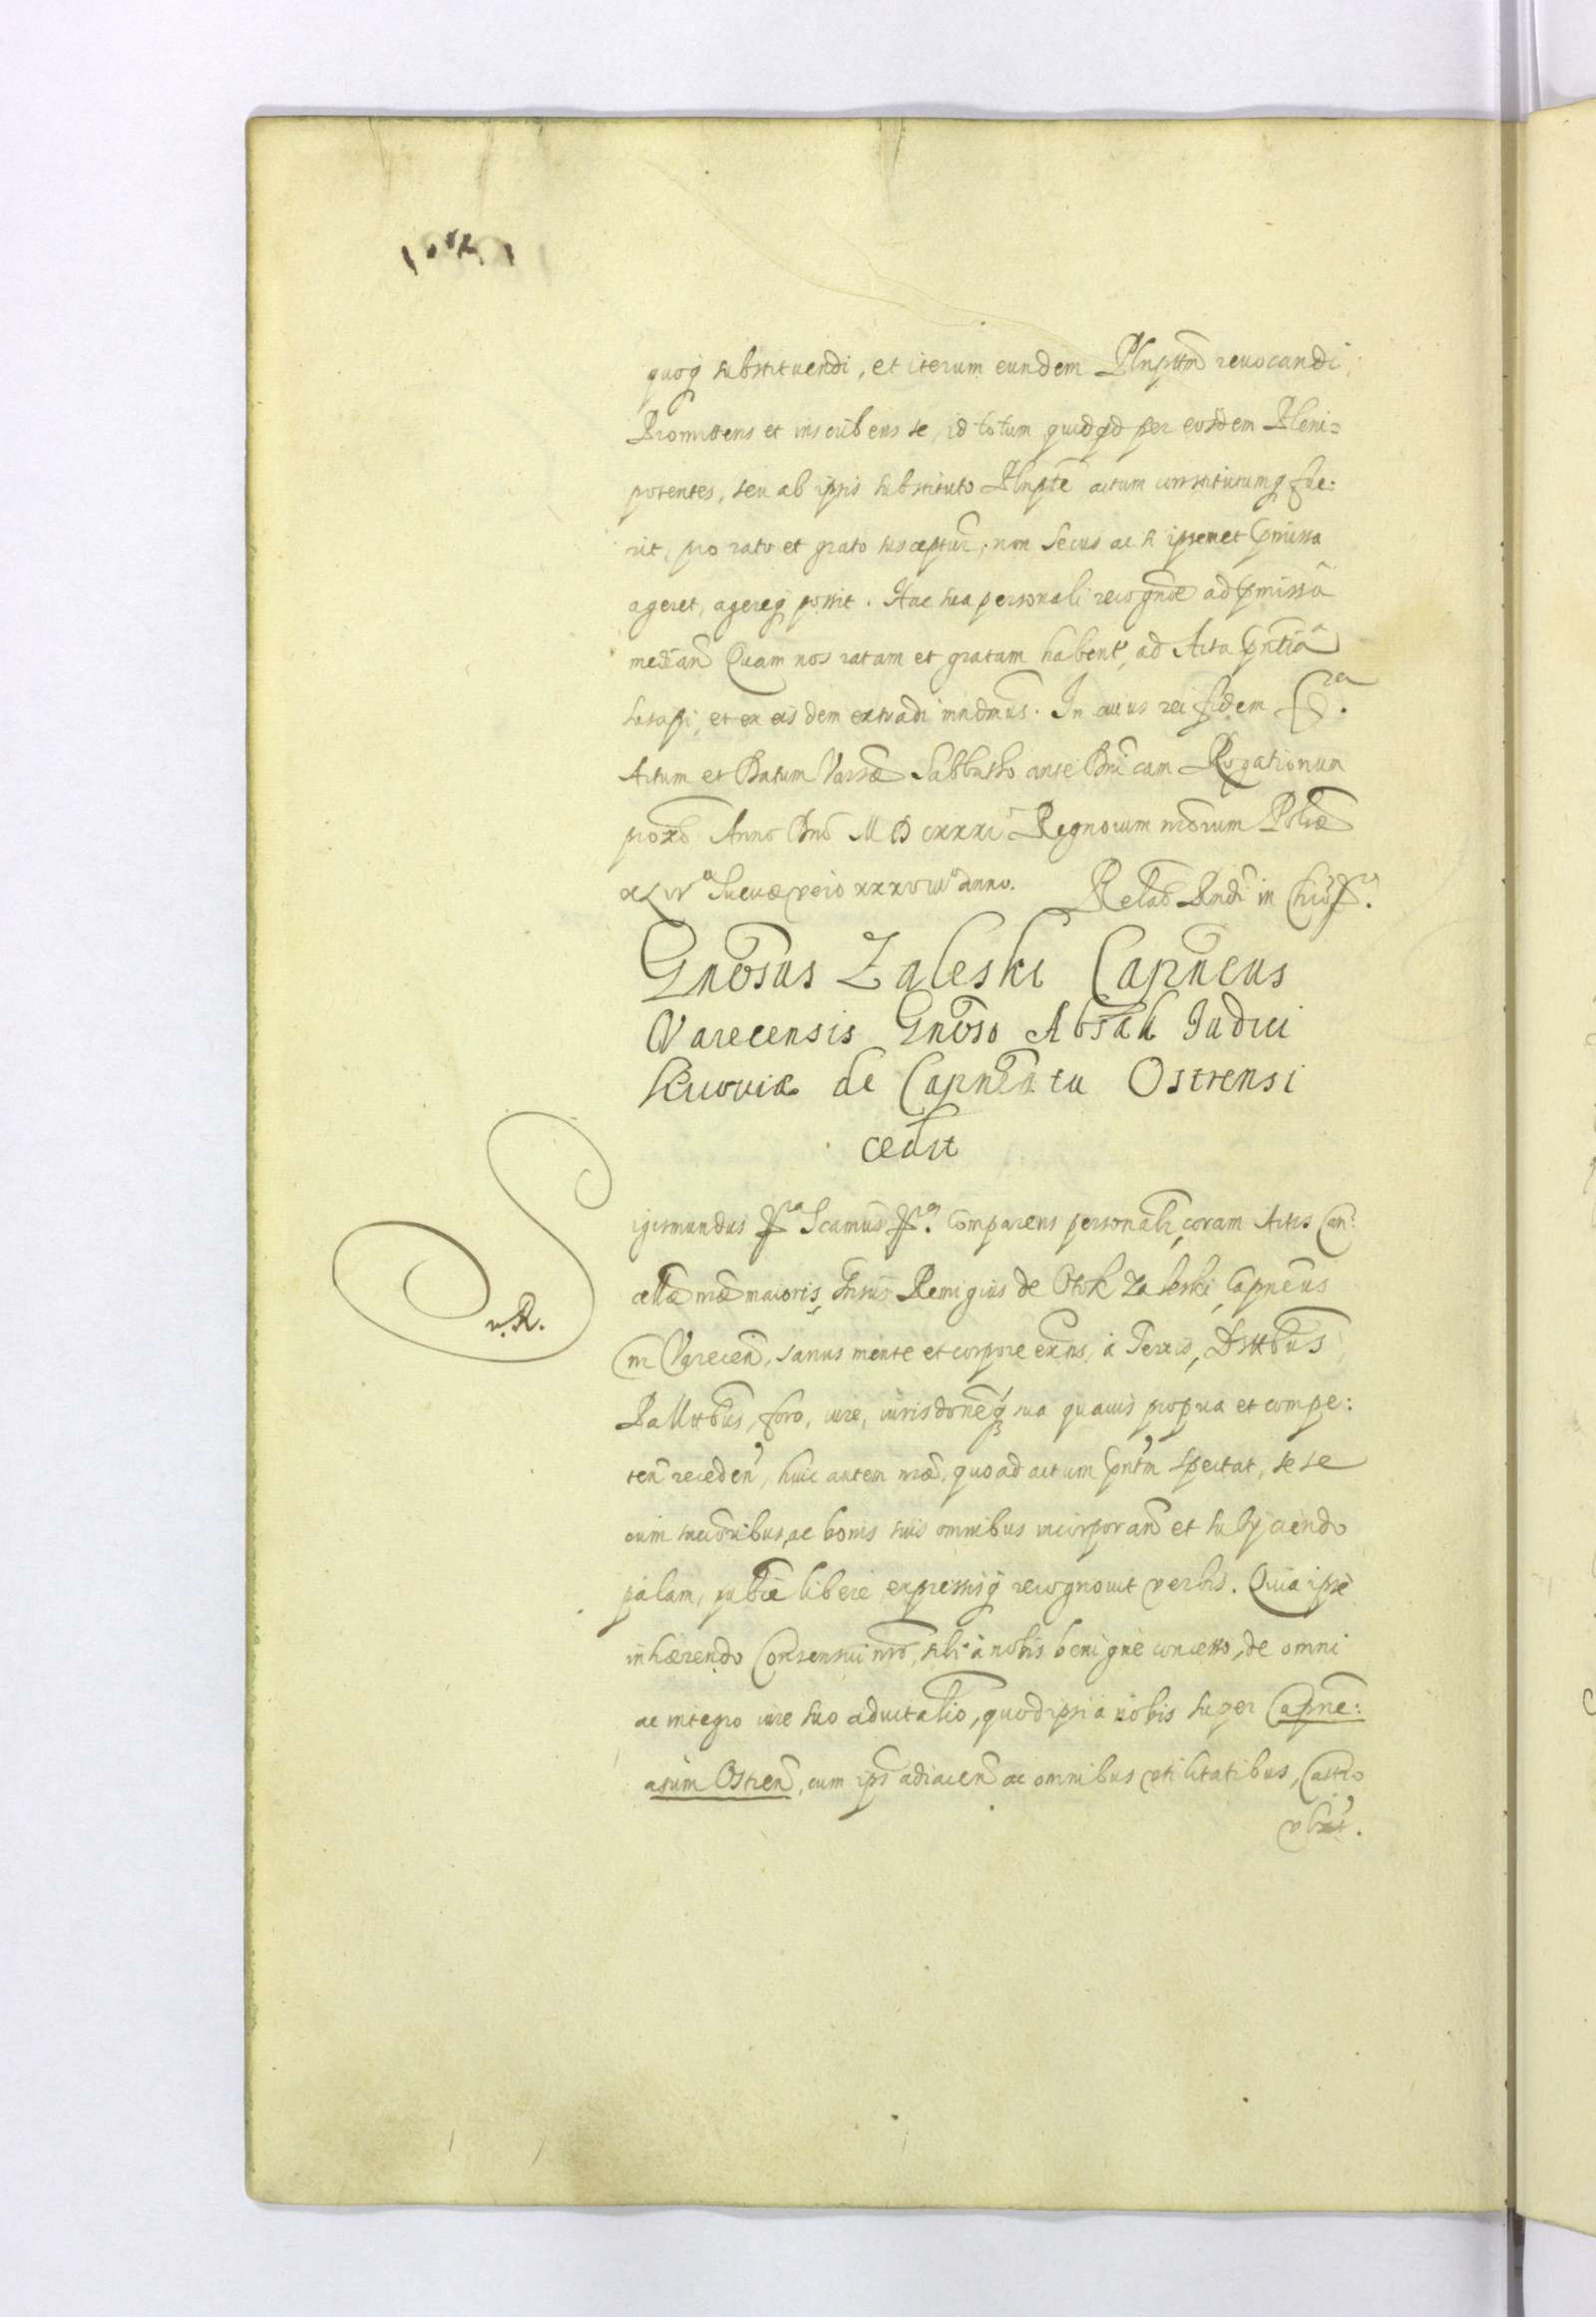 quoq substituendi, et iterum eundem Plnpttm reuocandi,
Promittens et inscribens se, id totum quidqd per eosdem Pleni=
potentes, seu ab ipsis substituto Plnpte actum constitutumq fue:
rit, pro rato et grato susceptur, non secus ac si ipsemet pmissa
ageret, agereq possit. Hac sua personali recognõe ad pmissa
median Quam nos ratam et gratam habent, ad Acta pntia
suscipi, et ex eis dem extradi mndmus. In cuius rei fidem
Actum et Datum Varsæ Sabbatho ante Dnicam Rogationum
Anno Dni MDCXXXI Regnorum nrorum Poliæ
XLIV Sueuæ vero XXXVIII anno. Relao Rndi in Chro
Gnosus Zaleski Capneus
Varecensis Gnoso Judici
Kiiouiæ de Capneatu Ostrensi
cedit
Sigismundus Scamus Comparens personalr coram Actis Can:
cellæ nræ maioris, Gnsus Remigius de Otok Zaleski, Capneus
nr Varecen, sanus mente et corpore exns, à Terris, Disttbus
Pallttbus, foro, iure, iurisdoneq sua quauis propria et compe:
ten receden, huic autem nræ, quoad actum pntm spectat, sese
cum succoribus, ac bonis suis omnibus incorporan et subyciendo
palam, publice libere expressisq recognouit verbis. Quia ipse
inhærendo Consensui nro, sibi à nobis benigne concesso, de omni
ac integro iure suo aduitalio, quod ipsi à nobis super Capne:
atum Ostren, cum ips adiacen ac omnibus vtilitatibus, Castro
v.R.